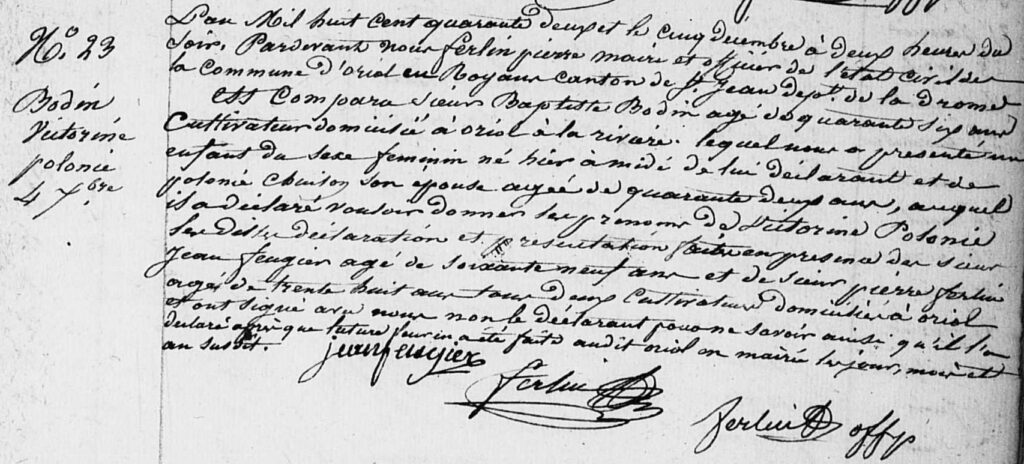 N.º 23
Bodin
Victorine
polonie
4 Xbre
L'an Mil huit cent quarante deux et le cinq décembre à deux heures du
soir, Pardevant nous ferlin pierre maire et officier de l'état civil de
la commune d'oriol en Royans canton de St. Jean dept. de la drome
est Comparu sieur Baptiste Bodin agé de quarante six ans
Cultivateur domicilié à oriol à la rivière. lequel nous a présenté un
enfant du sexe feminin né hier à midi de lui déclarant et de
polonie son épouse agée de quarante deux ans, auquel
il a déclaré vouloir donner les prenoms de Victorine Polonie
les dites déclaration et présentation faites en presence des sieur
Jean feugier agé de soixante neuf ans et de sieur pierre ferlin
agé de trente huit ans tous deux Cultivateur domicilié à oriol
et ont signé avec nous non le déclarant pour ne savoir ainsi qu'il l'a
déclaré après que lecture a été faite audit oriol en mairie les jour, mois et
an susdit.
jean feugier
ferlin
ferlin